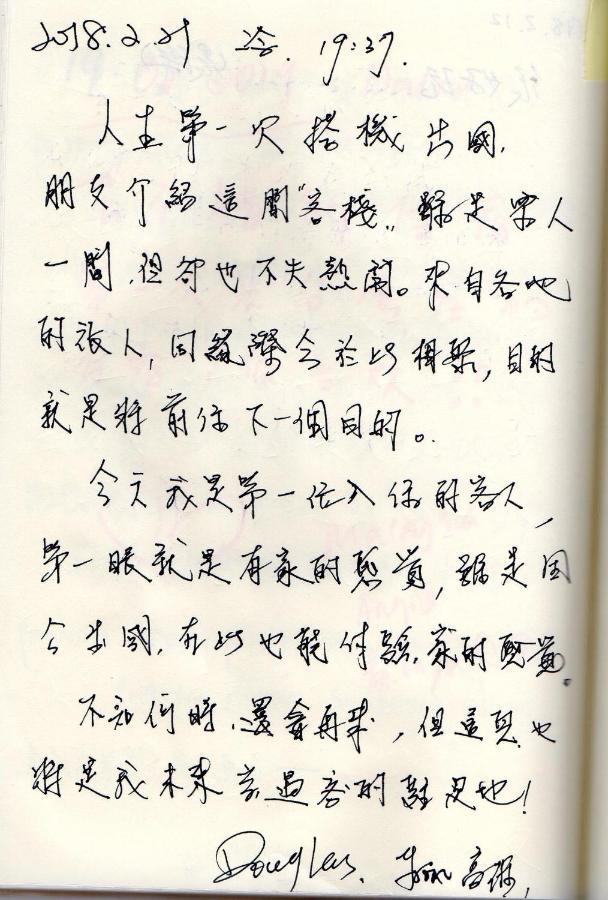 2018.2.21 冷. 19:37.
人生第一次搭機出國,
朋友介紹這間"客棧",雖是眾人
一間,但卻也不失熱鬧。來自各地
的旅人,因緣際會於此相聚,目的
就是將前往下一個目的。
今天我是第一位入住的客人,
第一眼就是有家的感覺,雖是因
公出國,在此也能体驗家的感覺。
不知何時,還會再來,但這裡也
將是我未來 過客的駐足地!
Douglas. 高雄,